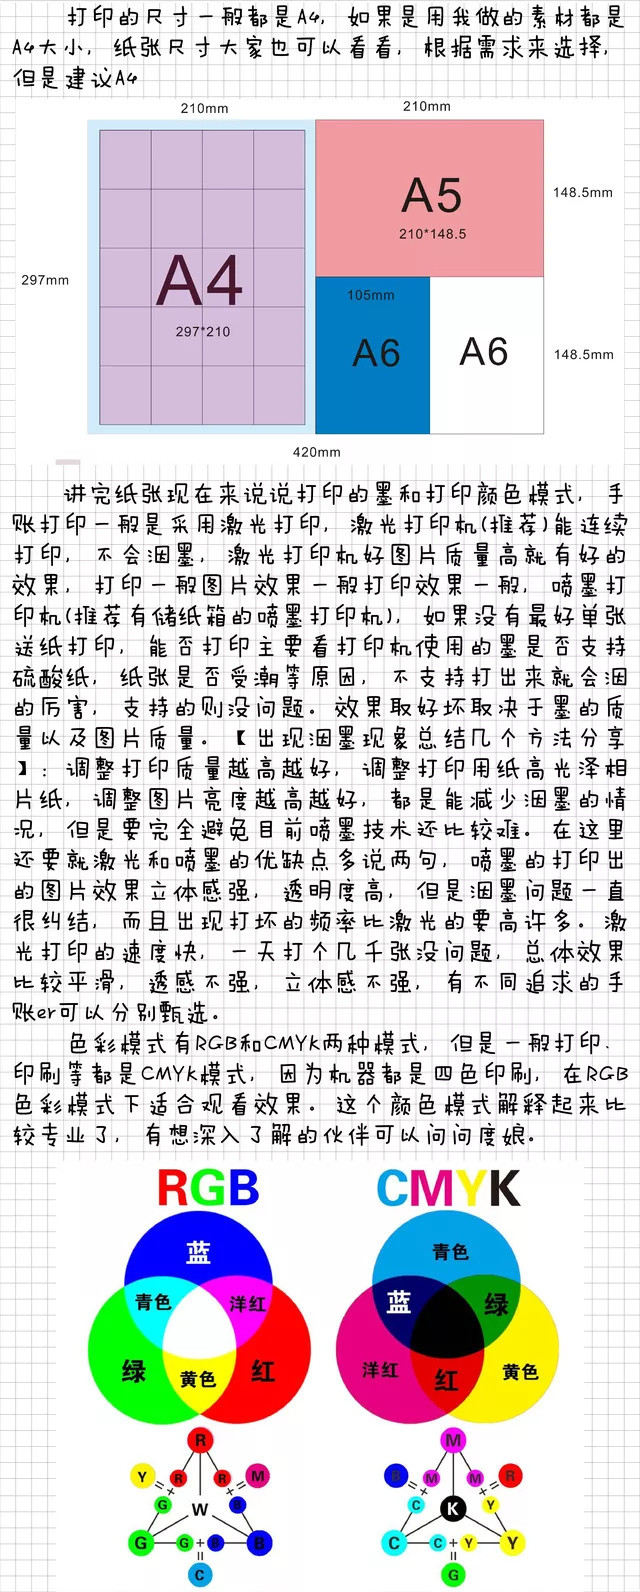 打印的尺寸一般都是A4，如果是用我做的素材都是
A4大小，纸张尺寸大家也可以看看，根据需求来选择，
但是建议A4
210mm
210mm
A4
297*210
297mm
A5
210*148.5
148.5mm
105mm
A6
A6
148.5mm
420mm
讲完纸张现在来说说打印的墨和打印颜色模式，手
账打印一般是采用激光打印，激光打印机(推荐)能连续
打印，不会洇墨，激光打印机好图片质量高就有好的
效果，打印一般图片效果一般打印效果一般，喷墨打
印机(推荐有储纸箱的喷墨打印机)，如果没有最好单张
送纸打印，能否打印主要看打印机使用的墨是否支持
硫酸纸，纸张是否受潮等原因，不支持打出来就会洇
的厉害，支持的则没问题。效果取好坏取决于墨的质
量以及图片质量。【出现洇墨现象总结几个方法分享
】：调整打印质量越高越好，调整打印用纸高光泽相
片纸，调整图片亮度越高越好，都是能减少洇墨的情
况，但是要完全避免目前喷墨技术还比较难。在这里
还要就激光和喷墨的优缺点多说两句，喷墨的打印出
的图片效果立体感强，透明度高，但是洇墨问题一直
很纠结，而且出现打坏的频率比激光的要高许多。激
光打印的速度快，一天打个几千张没问题，总体效果
比较平滑，透感不强，立体感不强，有不同追求的手
账er可以分别甄选。
色彩模式有RGB和CMYK两种模式，但是一般打印、
印刷等都是CMYK模式，因为机器都是四色印刷，在RGB
色彩模式下适合观看效果。这个颜色模式解释起来比
较专业了，有想深入了解的伙伴可以问问度娘。
RGB
蓝
青色
洋红
绿
黄色
红
CMYK
青色
蓝
绿
洋红
红
黄色
R
Y
R
R
M
G
+
=
+
=
B
W
G
G
+
B
B
=
C
M
B
M
M
R
C
+
=
+
=
Y
K
C
C
+
Y
Y
=
G